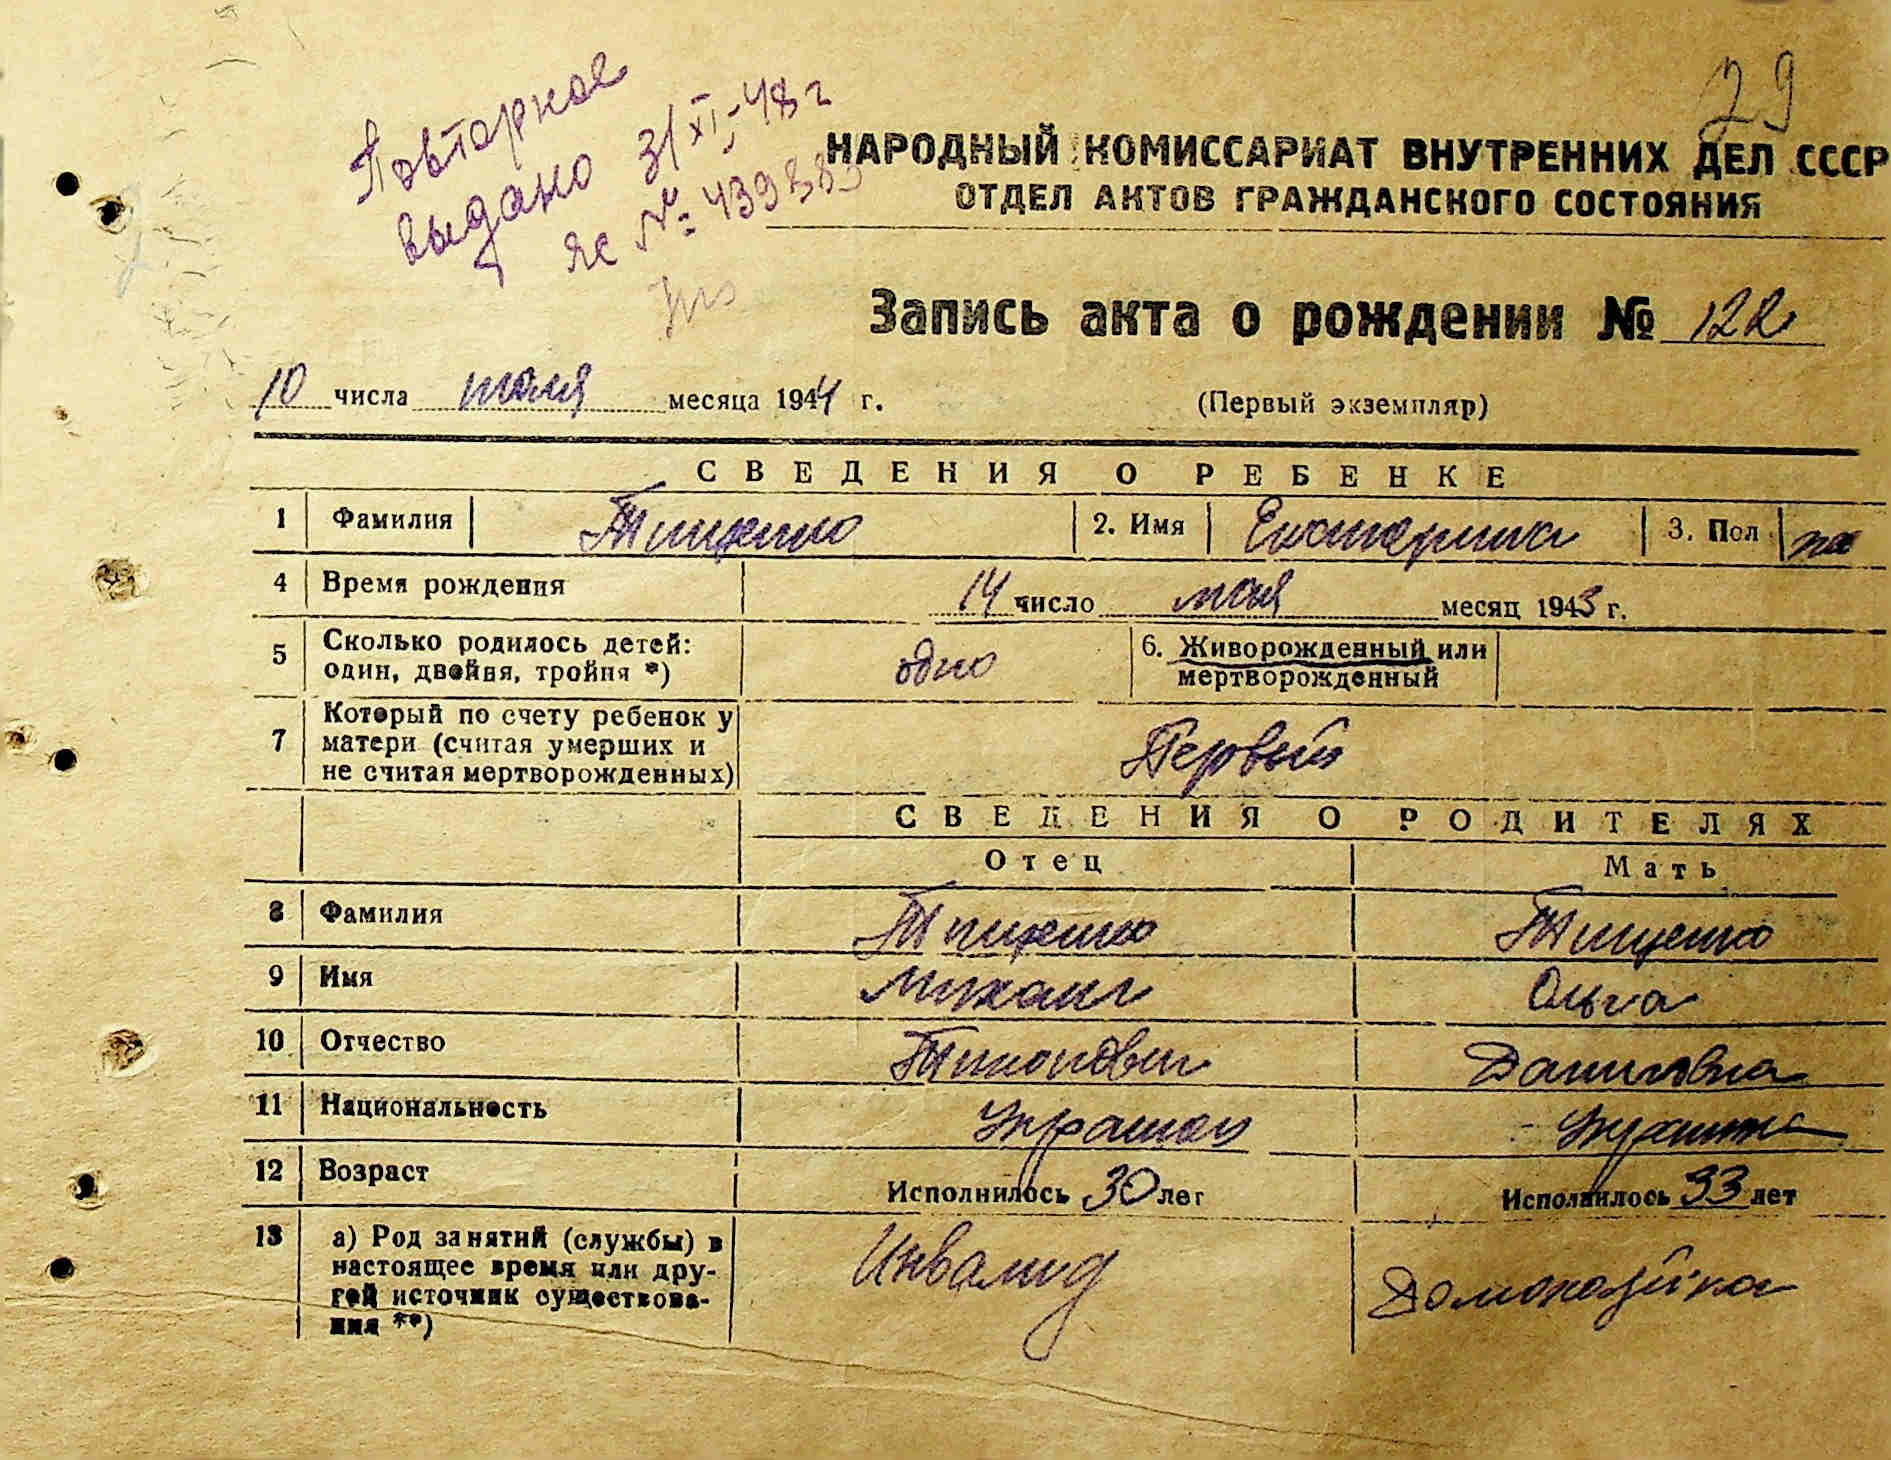 29
Повторное
выдано 31/XI-48г
яс № 439883
НАРОДНЫЙ КОМИССАРИАТ ВНУТРЕННИХ ДЕЛ СССР
ОТДЕЛ АКТОВ ГРАЖДАНСКОГО СОСТОЯНИЯ
Запись акта о рождении № 122
10 числа июля месяца 1944 г. (Первый экземпляр)
СВЕДЕНИЯ О РЕБЕНКЕ
1 Фамилия Тищенко 2. Имя Екатерина 3. Пол жен
4 Время рождения 14 число мая месяц 1943 г.
5 Сколько родилось детей: один, двойня, тройня *) одно 6. Живорожденный или мертворожденный
7 Который по счету ребенок у матери (считая умерших и не считая мертворожденных) Первый
СВЕДЕНИЯ О РОДИТЕЛЯХ
Отец Мать
8 Фамилия Тищенко Тищенко
9 Имя Михаил Ольга
10 Отчество Тихонович Даниловна
11 Национальность Украинец Украинка
12 Возраст Исполнилось 30 лет Исполнилось 33 лет
13 а) Род занятий (службы) в настоящее время или другой источник существования **) Инвалид Домохозяйка